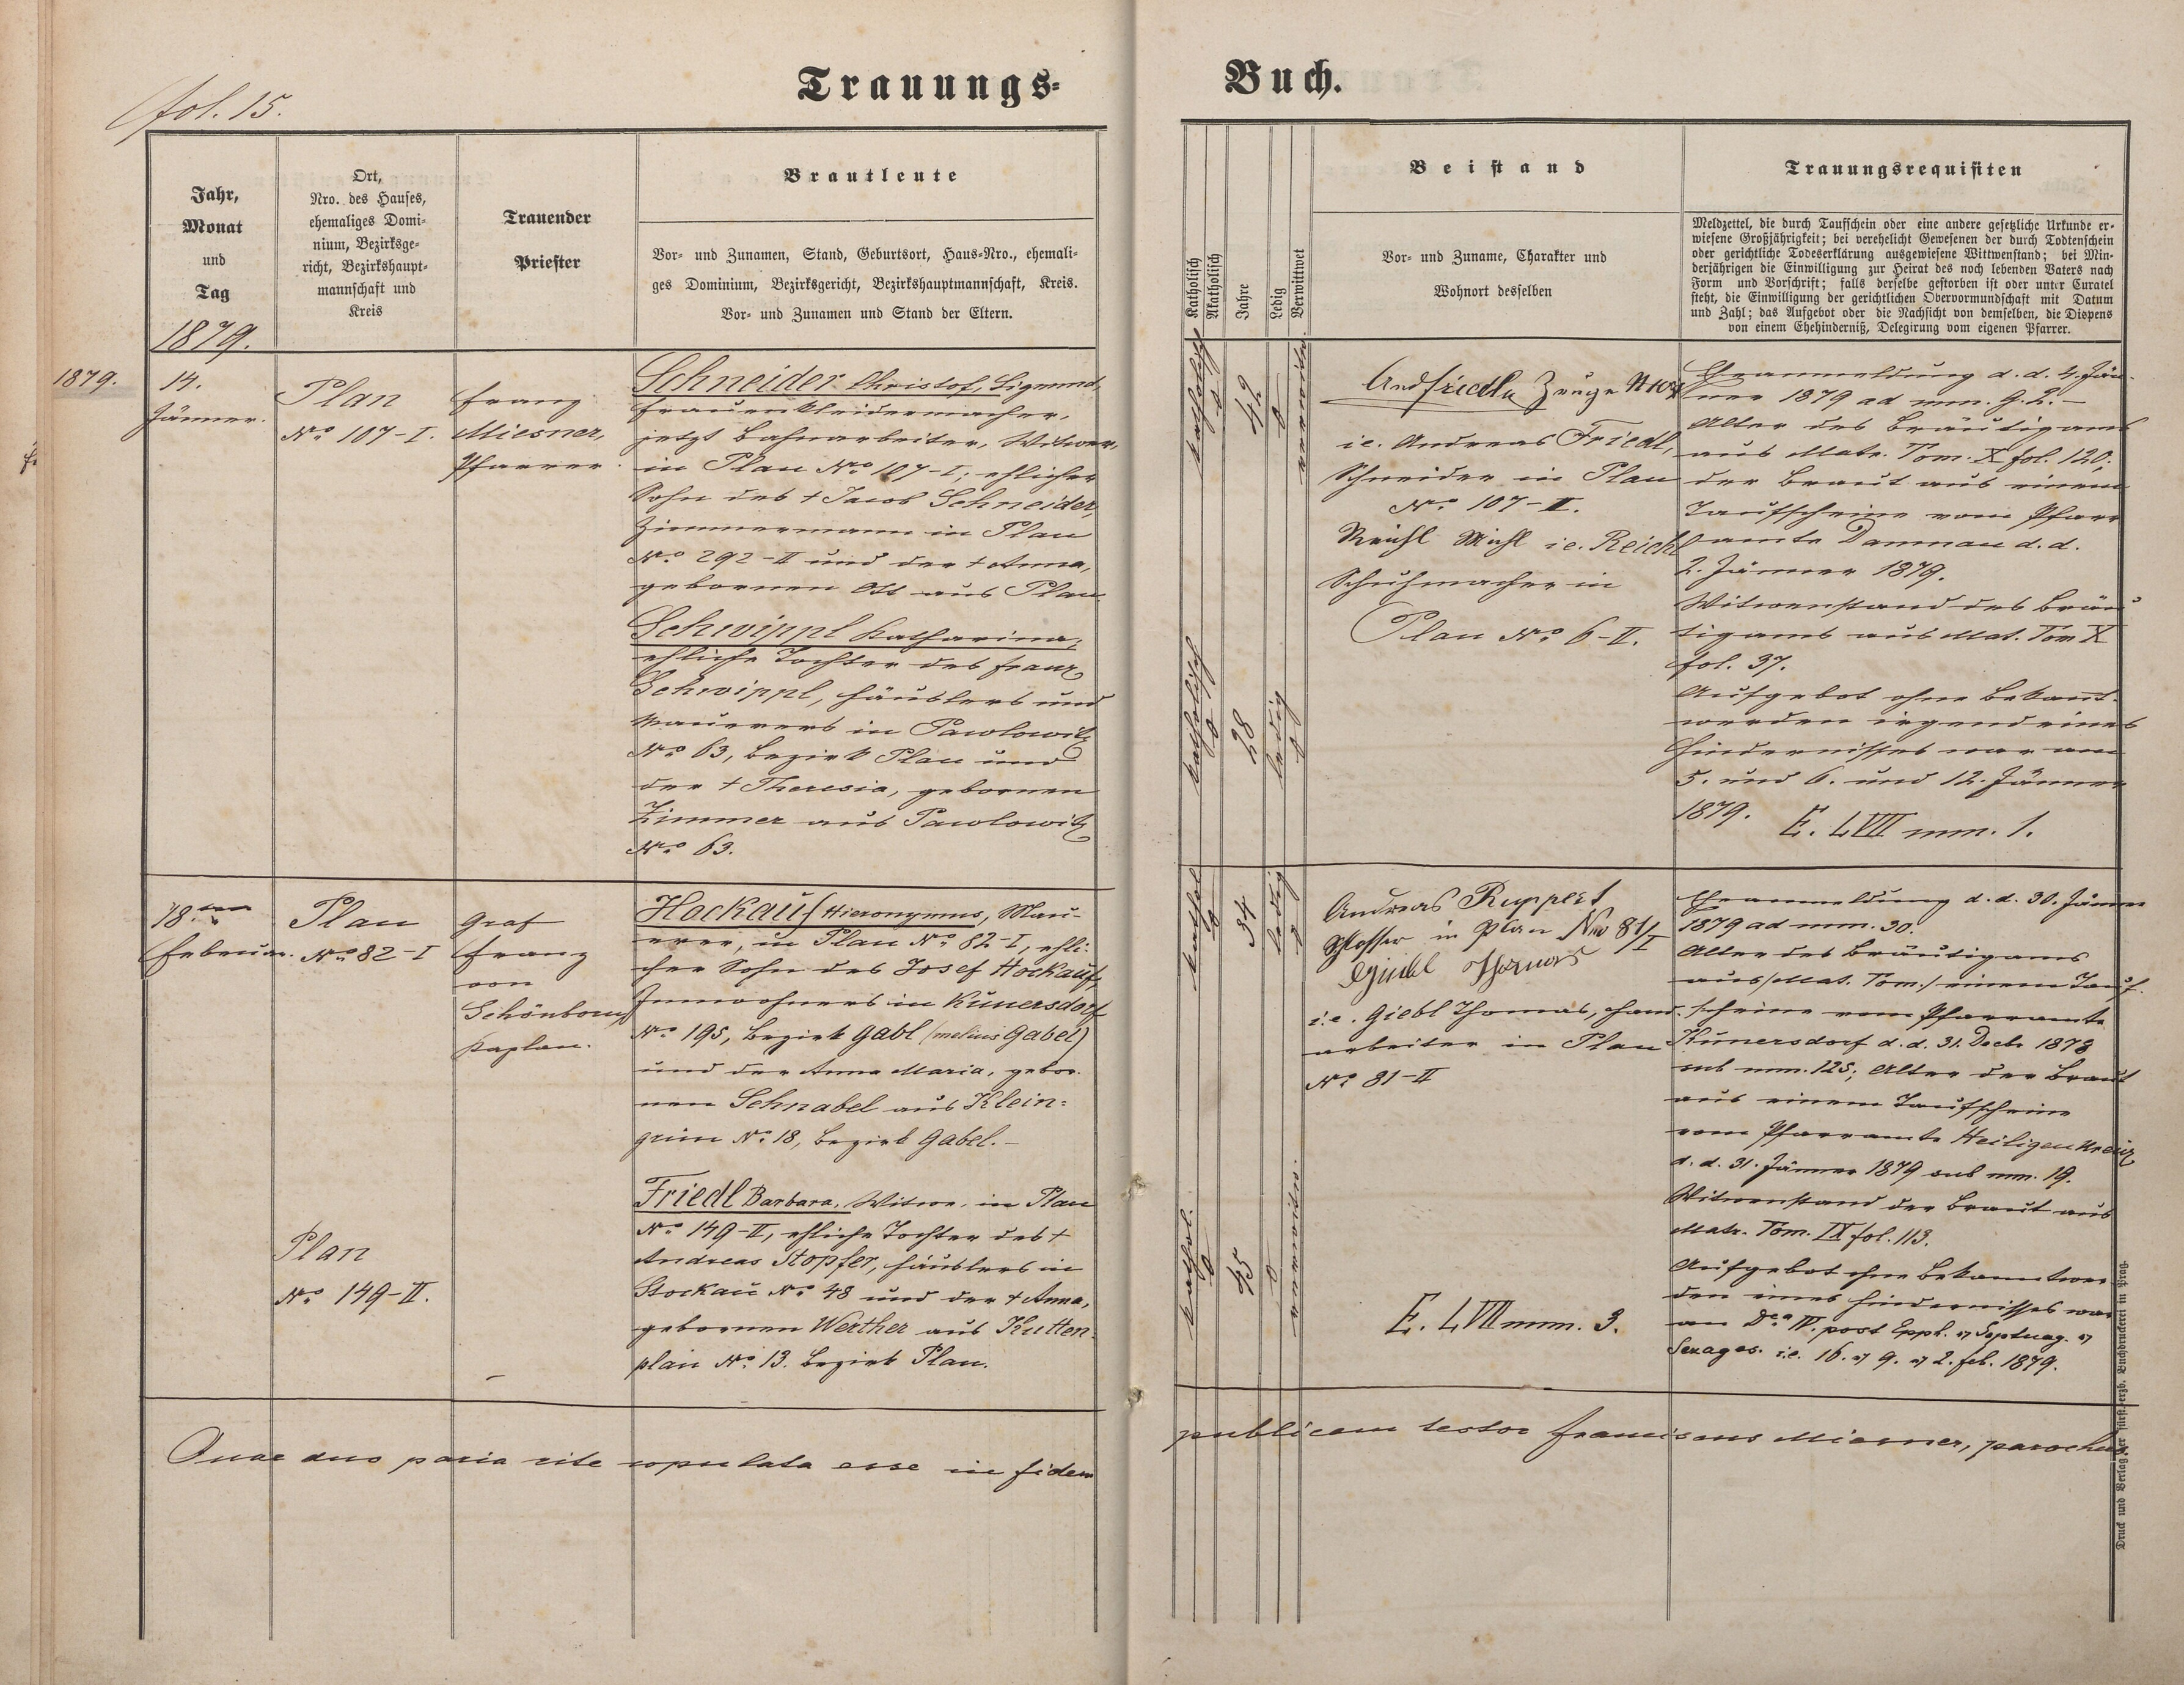 fol. 15.
Trauungs-
Buch.
Jahr,
Monat
und
Tag
1879.
Ort,
Nro. des Hauses,
ehemaliges Domi-
nium, Bezirksge-
richt, Bezirkshaupt-
mannschaft und
Kreis
Trauender
Priester
Brautleute
Vor- und Zunamen, Stand, Geburtsort, Haus-Nro., ehemali-
ges Dominium, Bezirksgericht, Bezirkshauptmannschaft, Kreis.
Vor- und Zunamen und Stand der Eltern.
Katholisch
Akatholisch
Jahre
Ledig
Verwittwet
Beistand
Vor- und Zuname, Charakter und
Wohnort desselben
Trauungsrequisiten
Meldzettel, die durch Taufschein oder eine andere gesetzliche Urkunde er-
wiesene Großjährigkeit; bei verehelicht Gewesenen der durch Todtenschein
oder gerichtliche Todeserklärung ausgewiesene Wittwenstand; bei Min-
derjährigen die Einwilligung zur Heirat des noch lebenden Vaters nach
Form und Vorschrift; falls derselbe gestorben ist oder unter Curatel
steht, die Einwilligung der gerichtlichen Obervormundschaft mit Datum
und Zahl; das Aufgebot oder die Nachsicht von demselben, die Dispens
von einem Ehehinderniß, Delegirung vom eigenen Pfarrer.
1879.
14.
Jänner.
Plan
No. 107-I.
Franz
Miesner,
Pfarrer.
Schneider Christof, Sigmund,
Frauenkleidermacher,
jetzt Bahnarbeiter, Witwer,
in Plan No. 107-I; ehlicher
Sohn des † Jacob Schneider,
Zimmermann in Plan
No. 292-II und der † Anna,
gebornen Ott aus Plan.
Schwippl Katharina,
ehliche Tochter des Franz
Schwippl, Häuslers und
Maurers in Pawlowitz
No. 63, Bezirk Plan und
der † Theresia, gebornen
Zimmer aus Pawlowitz
No. 63.
katholisch
0
42
0
verwitw.
katholisch
0
28
ledig
0
And Friedla Zeuge N 107
i.e. Andreas Friedl,
Schneider in Plan
No. 107-II.
Reichl Michl i.e. Reichl
Schuhmacher in
Plan No. 6-II.
Eheanmeldung d. d. 4. Jän-
ner 1879 ad mm. G. 2.-
Alter des Bräutigams
aus Matr. Tom. X fol. 120;
der Braut aus einem
Taufscheine vom Pfarr
amte Damnau d. d.
2. Jänner 1879.
Witwenstand des Bräu
tigams aus Mat. Tom X
fol. 37.
Aufgebot ohne Bekannt-
werden irgend eines
Hindernisses war am
5. und 6. und 12. Jänner
1879.
E. LVII mm. 1.
18.ten
Februar.
Plan
No. 82-I
Graf
Franz
von
Schönborn,
Kaplan.
Hockauf Hieronymus, Mau-
rer, in Plan No. 82-I, ehli-
cher Sohn des Josef Hockauf,
Inwohners in Kunersdorf
No. 195, Bezirk Gabl (melius Gabel)
und der Anna Maria, gebor.
nen Schnabel aus Klein-
grün No. 18, Bezirk Gabel.-
Plan
No. 149-II.
Friedl Barbara, Witwe, in Plan
No. 149-II, ehliche Tochter des †
Andreas Stopfer, Häuslers in
Stockau No. 48 und der † Anna,
gebornen Werther aus Kutten-
plan No. 13. Bezirk Plan.
kathol.
0
34
ledig
0
kathol.
0
45
0
verwitw.
Andreas Ruppert
Schlosser in Plan No 81/I
Giebl Thomas
i.e. Giebl Thomas, Hand-
arbeiter in Plan
No. 81-II
E. LVII mm. 3.
Eheanmeldung d. d. 30. Jänner
1879 ad mm. 30.
Alter des Bräutigams
aus /Mat. Tom./ einem Tauf-
scheine vom Pfarramte
Kunersdorf d. d. 31. Decbr 1878
sub mm. 125; Alter der Braut
aus einem Taufscheine
vom Pfarramte Heiligenkreuz
d. d. 31. Jänner 1879 sub mm. 19.
Witwenstand der Braut aus
Matr. Tom. IX fol. 113.
Aufgebot ohne Bekanntwer
den eines Hindernisses war
an Dca IV. post Epph. et Septuag. et
Sexages. i.e. 16. et 9. et 2. Feb. 1879.
Quae duo paria rite copulata esse in fidem
publicam testor Franciscus Miesner, parochus.
Druck und Verlag der fürst. erzb. Buchdruckerei in Prag.